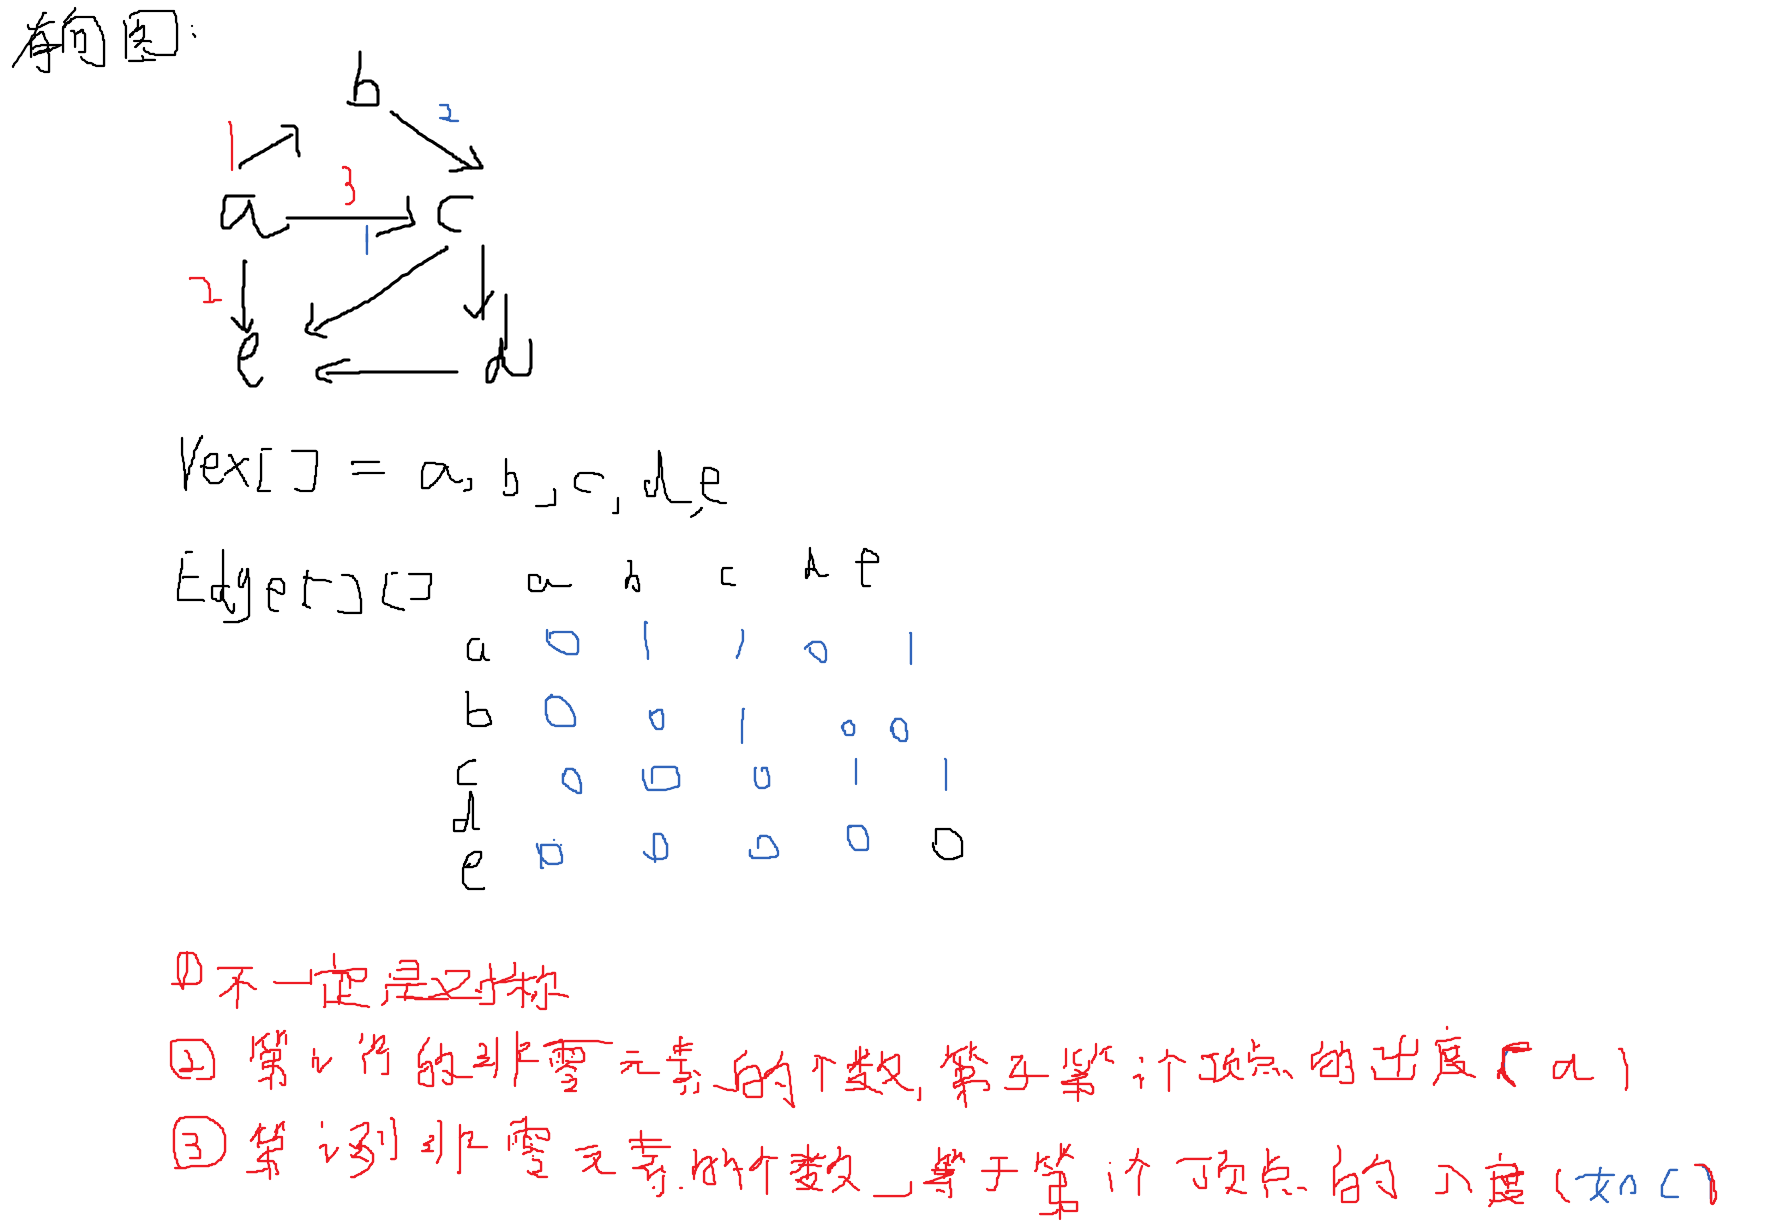 有向图:
b
1 2
3
a c
1
2
e d
Vex[] = a, b, c, d, e
Edge[][] a b c d e
a 0 1 1 0 1
b 0 0 1 0 0
c 0 0 0 1 1
d
e 0 0 0 0 0
① 不一定是对称
② 第i行的非零元素的个数, 等于第i个顶点的出度(a)
③ 第i列非零元素的个数, 等于第i个顶点的入度(如c)